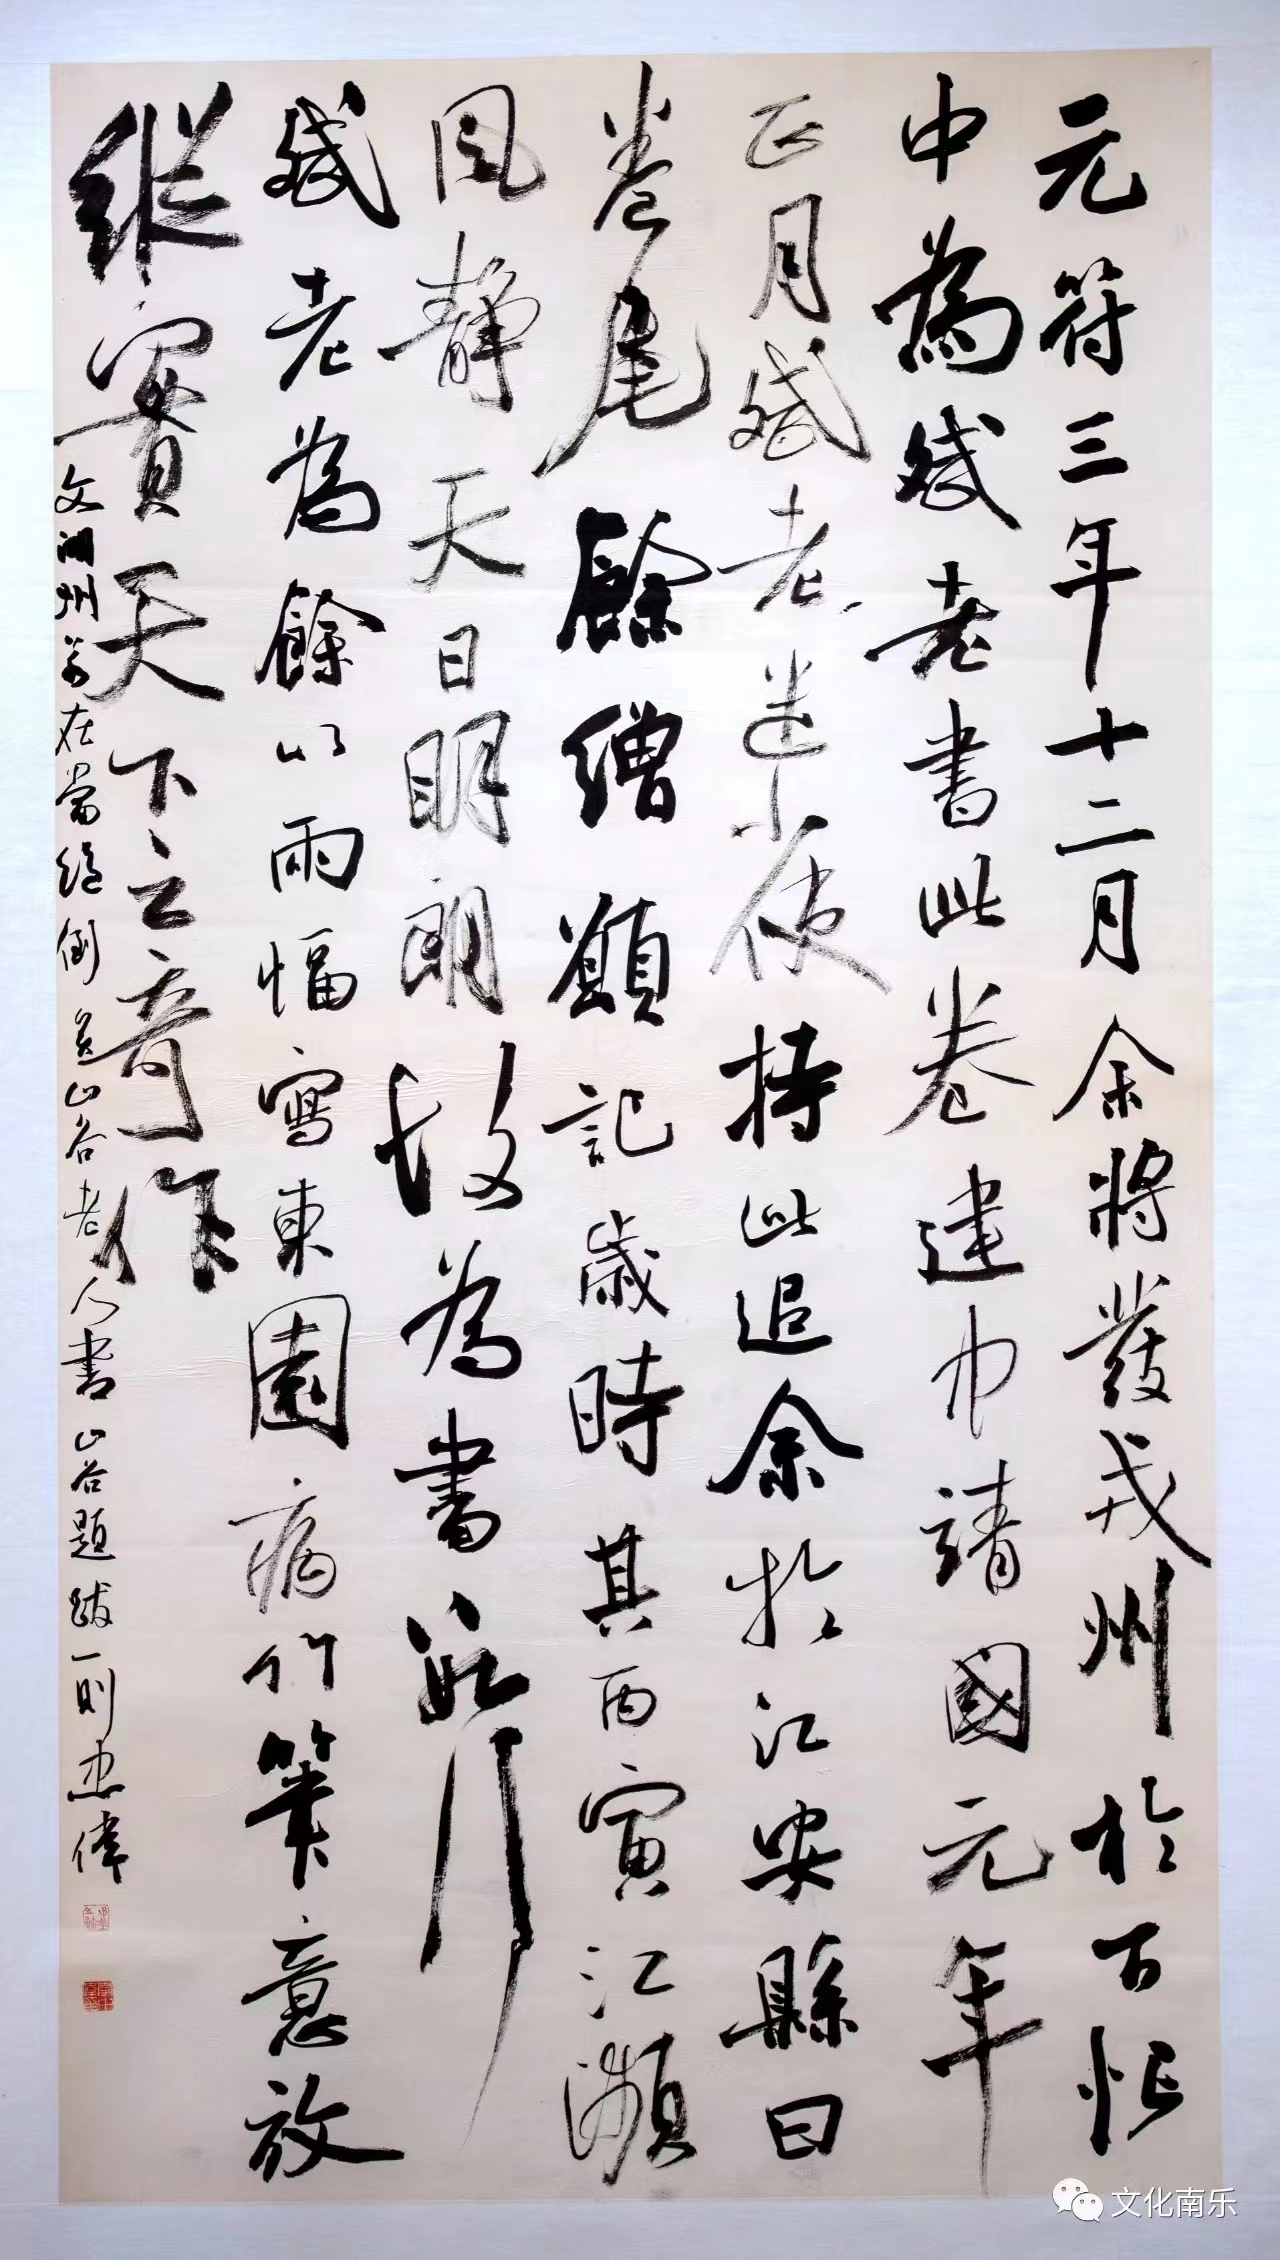 元符三年十二月余將發戎州於百忙
中為斌老書此卷建中靖國元年
正月斌老遣使持此追余於江安縣曰
卷尾餘繒願記歲時其丙寅江瀕
風靜天日明朗故為書
斌老為餘以兩幅寫東園病竹筆意放
縱實天下之奇作
文湖州若在當絕倒 山谷老人書 山谷題跋一則 忠偉
文化南乐